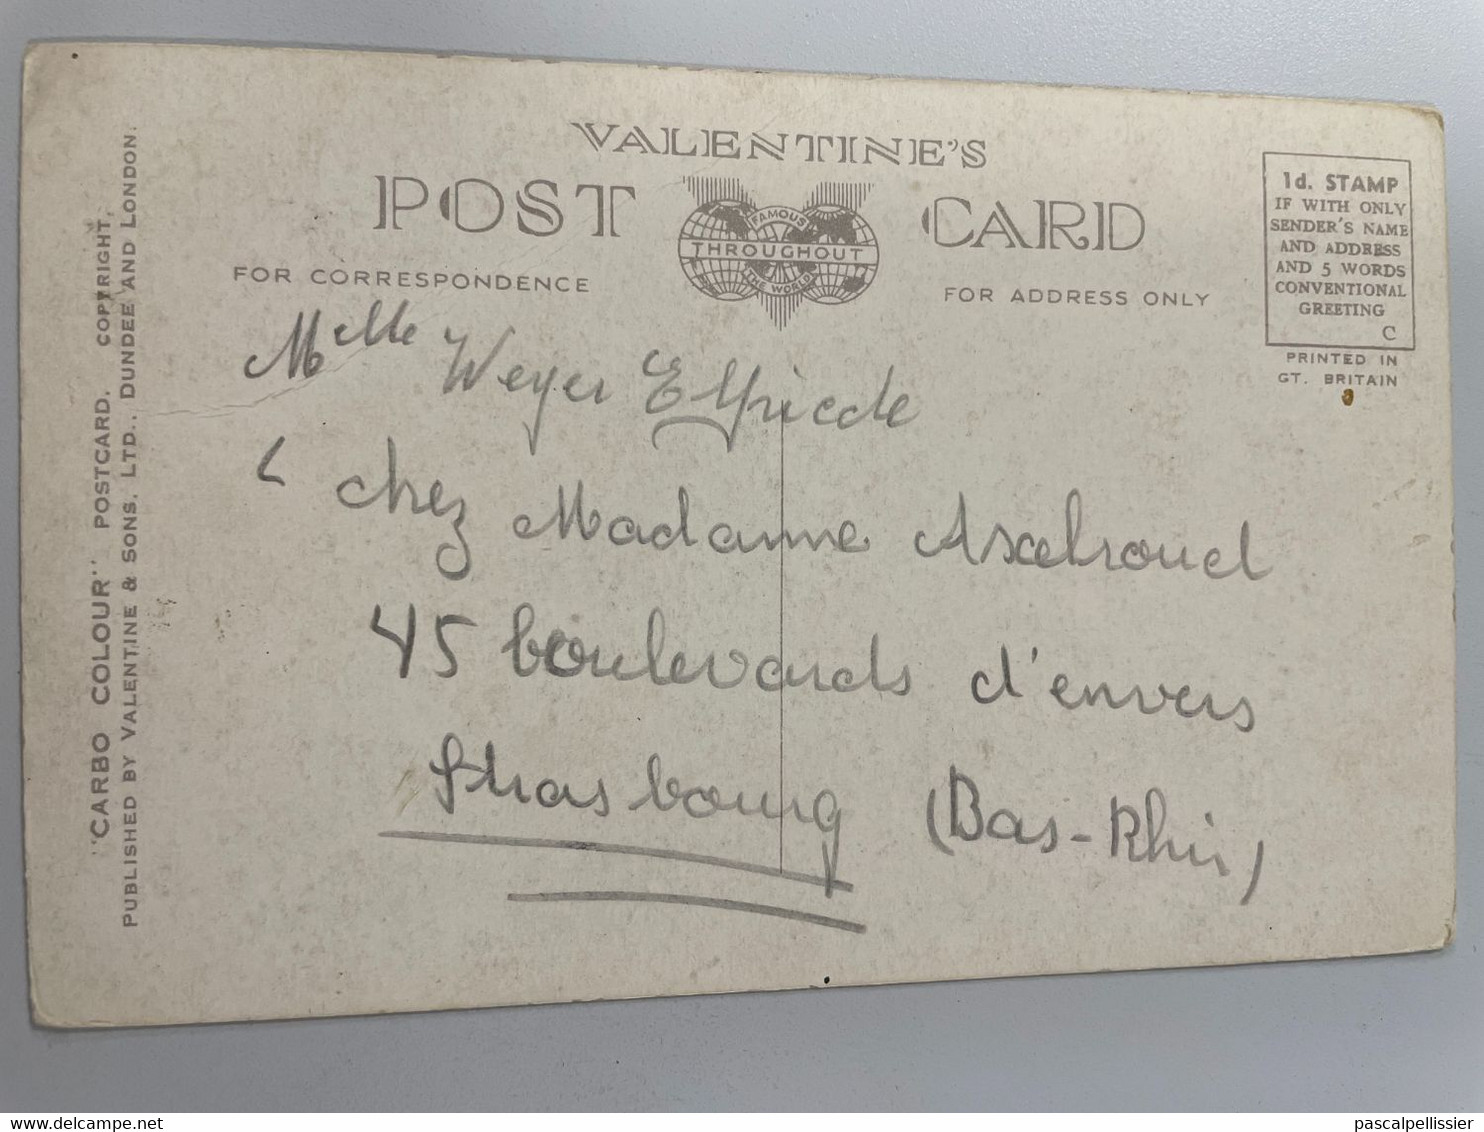 VALENTINE'S
POST CARD
FAMOUS
THROUGHOUT
THE WORLD
FOR CORRESPONDENCE
FOR ADDRESS ONLY
1d. STAMP
IF WITH ONLY
SENDER'S NAME
AND ADDRESS
AND 5 WORDS
CONVENTIONAL
GREETING
C
PRINTED IN
GT. BRITAIN
"CARBO COLOUR" POSTCARD. COPYRIGHT,
PUBLISHED BY VALENTINE & SONS, LTD., DUNDEE AND LONDON.
Mlle Weyer
chez Madame Axelroud
45 boulevards d'envers
Strasbourg (Bas-Rhin)
delcampe.net
pascalpellissier